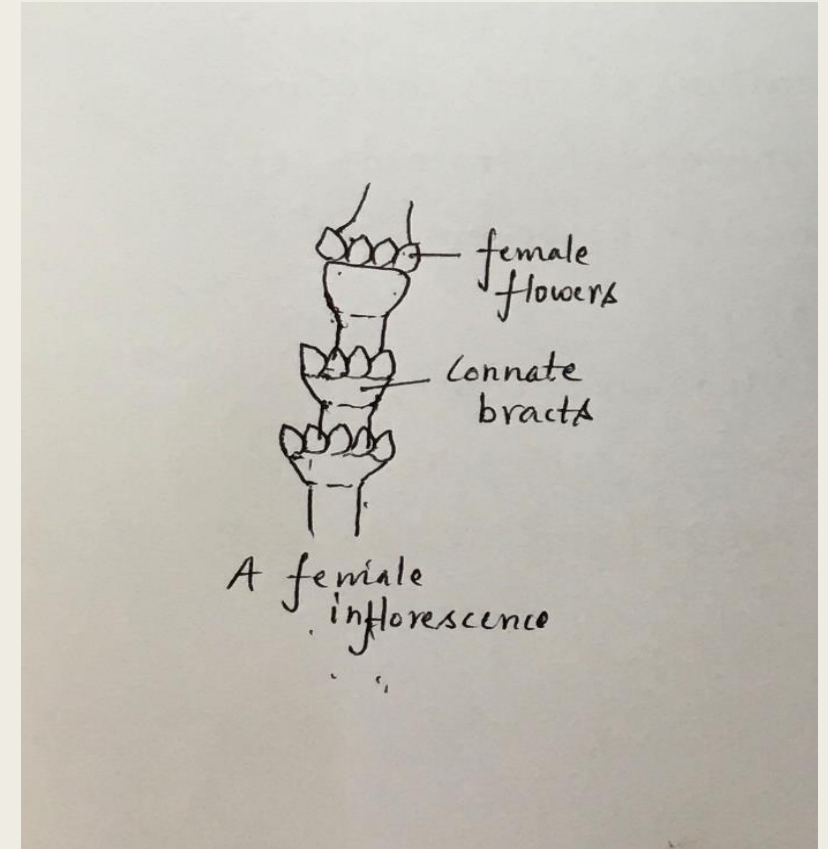 female
flowers
Connate
bracts
A female
inflorescence